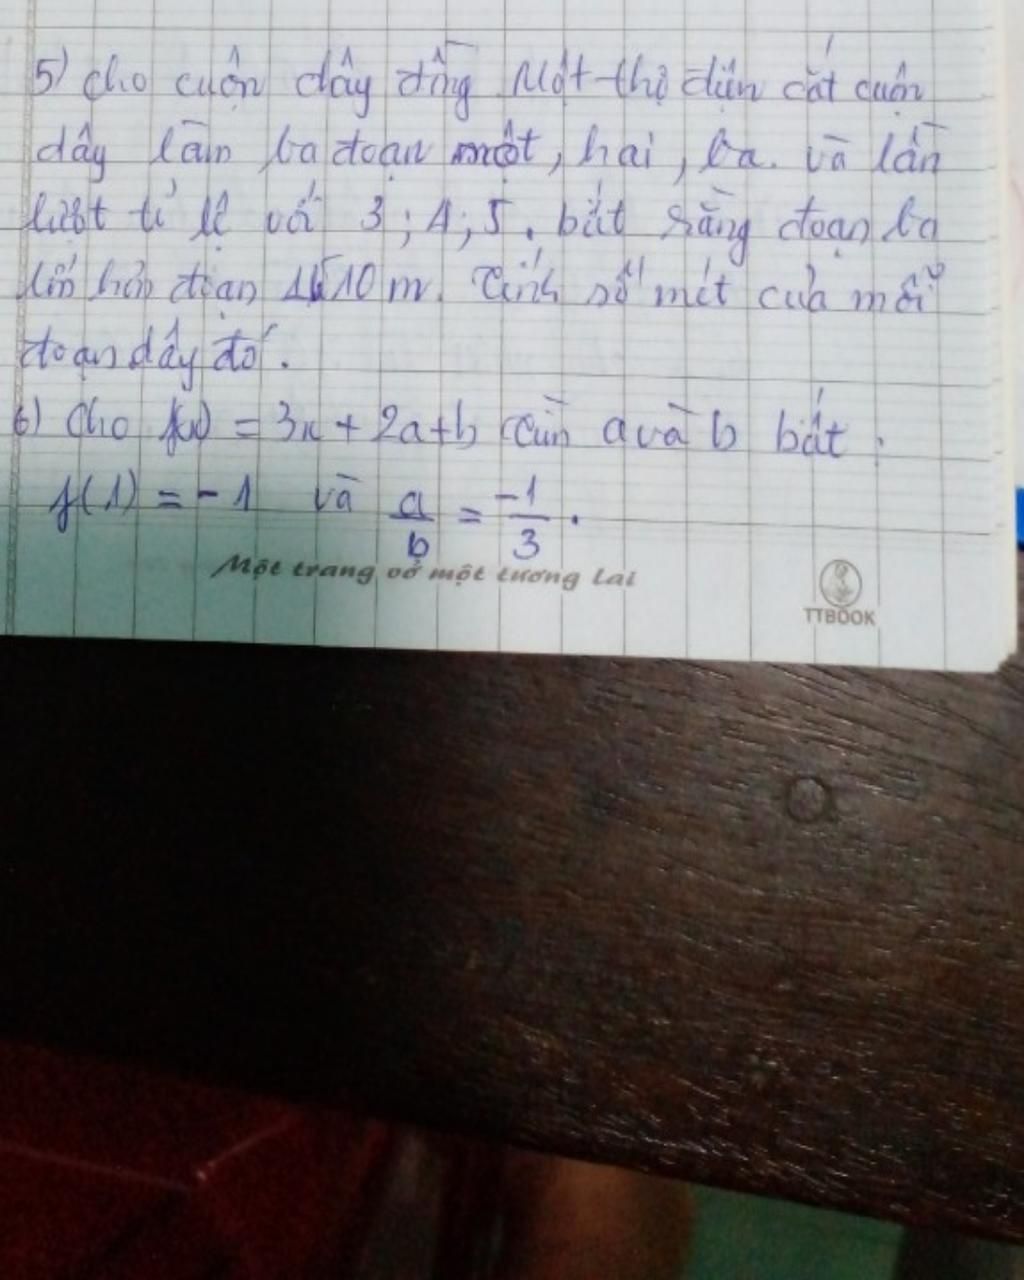 5) Cho cuộn dây đồng Một thợ điện cắt cuộn
dây làm ba đoạn một, hai, ba. và lần
lượt tỉ lệ với 3; 4; 5. biết rằng đoạn ba
lớn hơn đoạn 1 10 m. Tính số mét của mỗi
đoạn dây đó.
6) Cho f(x) = 3x + 2a + b Tìm a và b biết:
f(1) = -1 và a/b = -1/3.
Một trang vở một tương lai
TTBOOK